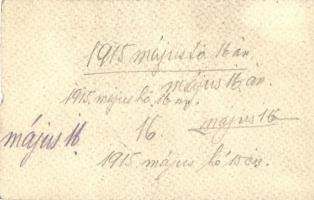 1915 május hó 16 án.
május 16 án.
1915. május hó. 16 án.
május 16. 16. május 16
1915 május hó 15 én.